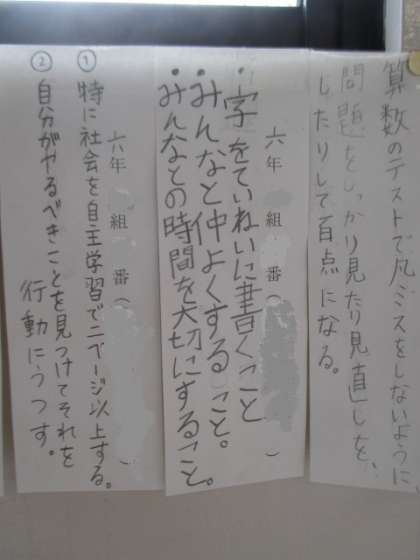 算数のテストで凡ミスをしないように、
問題をしっかり見たり見直しを、
したりして百点になる。
六年 組 番（ ）
・字をていねいに書くこと
・みんなと仲よくすること。
・みんなとの時間を大切にすること。
六年 組 番（ ）
① 特に社会を自主学習で二ページ以上する。
② 自分がやるべきことを見つけてそれを
行動にうつす。